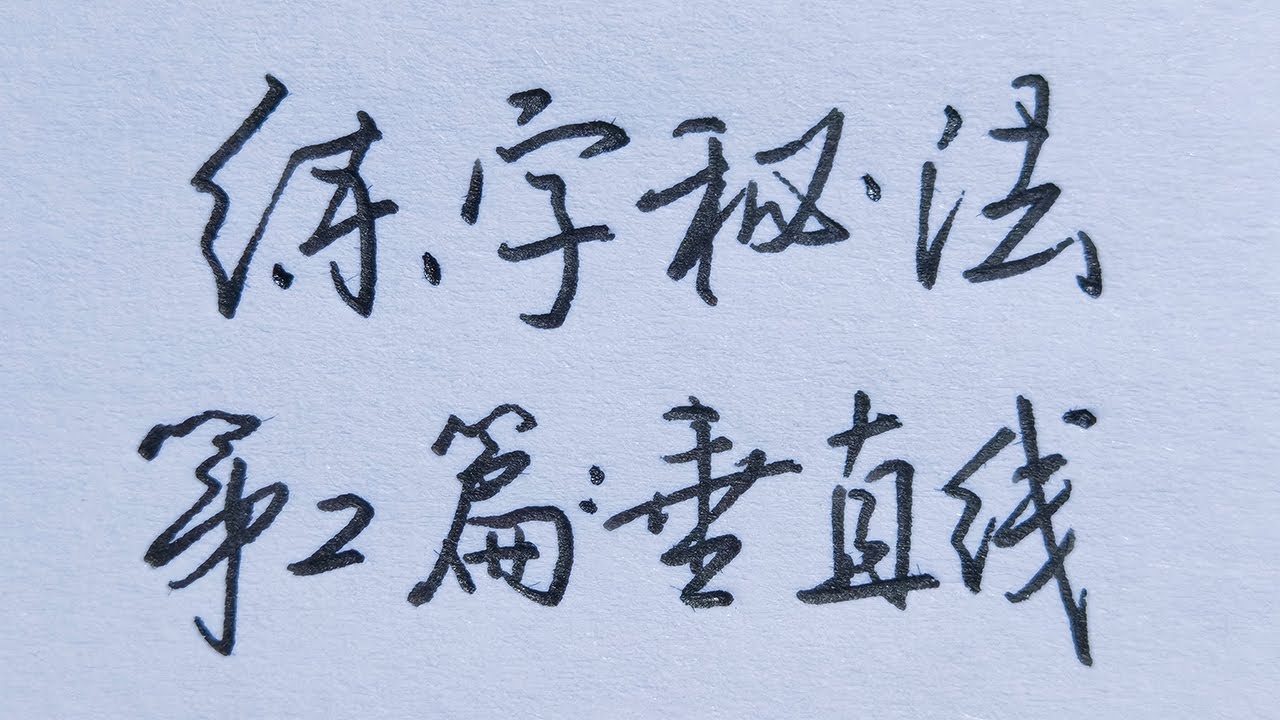 练字秘法
第2篇:垂直线